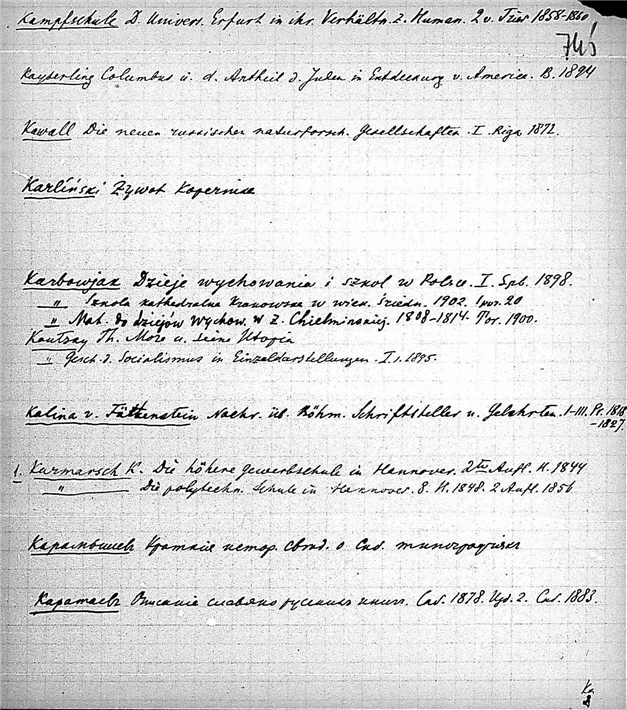 Kampfschule D. Univers. Erfurt in ihr. Verhältn. z. Human. 2 v. Trier 1858-1860
Kayserling Columbus u. d. Antheil d. Juden in Entdeckung v. America. B. 1894
Kawall Die neuen russischen naturforsch. Gesellschaften. I. Riga 1872.
Karliński Żywot Kopernika
Karbowjak Dzieje wychowania i szkol w Polsce. I. Spb. 1898.
" Szkola kathedralna Krakowska w wiek. Średn. 1902.
" Mat. do dziejów wychow. w Z. Chielminskiej. 1808-1814. Tor. 1900.
Kautzky Th. More u. seine Utopia
" Gesch. d. Socialismus in Einzeldarstellungen. I. 1895.
Kalina v. Jäthenstein Nachr. üb. Böhm. Schriftsteller u. Gelehrten. I-III. Pr. 1818
-1827.
1. Karmarsch K. Die höhere Gewerbschule in Hannover. 2te Aufl. H. 1844
" Die polytechn. Schule in Hannover. 8. H. 1848. 2 Aufl. 1856
Карамышевъ Краткія истор. свѣд. о Спб. типографіяхъ
Каратаевъ Описаніе славяно русскихъ книгъ. Спб. 1878. Изд. 2. Спб. 1883.
Ka